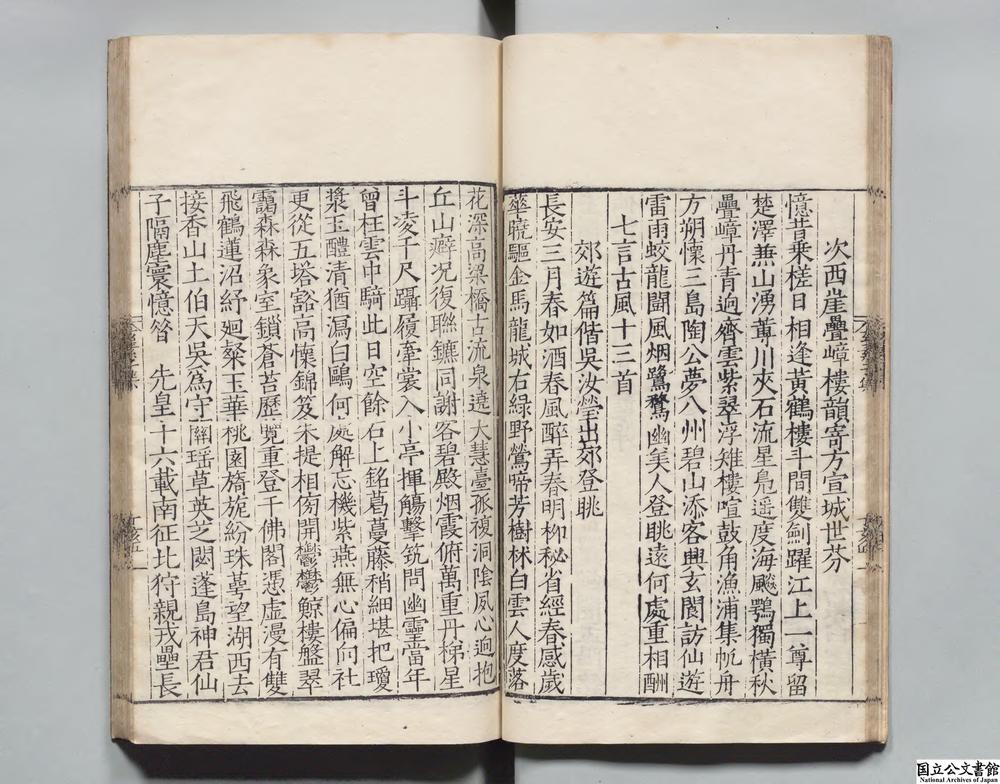 次西崖疊嶂樓韻寄方宣城世芬
憶昔乗槎日相逢黃鶴樓斗間雙劍躍江上一尊留
楚澤蕪山湧蓴川夾石流星鳧遥度海飈鶚獨橫秋
疊嶂丹青逈齊雲紫翠浮雉樓喧鼓角漁浦集帆舟
方朔懷三島陶公夢八州碧山添客興玄閣訪仙遊
雷雨蛟龍鬪風烟鷺鶩幽美人登眺遠何處重相酬
七言古風十三首
郊遊篇偕吳汝瑩出郊登眺
長安三月春如酒春風醉弄春明柳秘省經春感歲
華曉驅金馬龍城右綠野鶯啼芳樹林白雲人度落
花深高梁橋古流泉遶大慧臺孤複洞陰夙心逈抱
丘山癖况復聯鑣同謝客碧殿烟霞俯萬重丹梯星
斗凌千尺躡履牽裳入小亭揮觴擊筑問幽靈當年
曾枉雲中騎此日空餘石上銘葛蔓藤稍細堪把瓊
漿玉醴清猶瀉白鷗何處解忘機紫燕無心偏向社
更從五塔豁高懷錦笈朱提相傍開鬱鬱鯨樓盤翠
靄森森象室鎖蒼苔歷覽重登千佛閣憑虚漫有雙
飛鶴蓮沼紆廻粲玉華桃園旖旎紛珠萼望湖西去
接香山土伯天吳為守關瑶草英芝閟蓬島神君仙
子隔塵寰憶昝　先皇十六載南征北狩親戎壘長
国立公文書館
National Archives of Japan